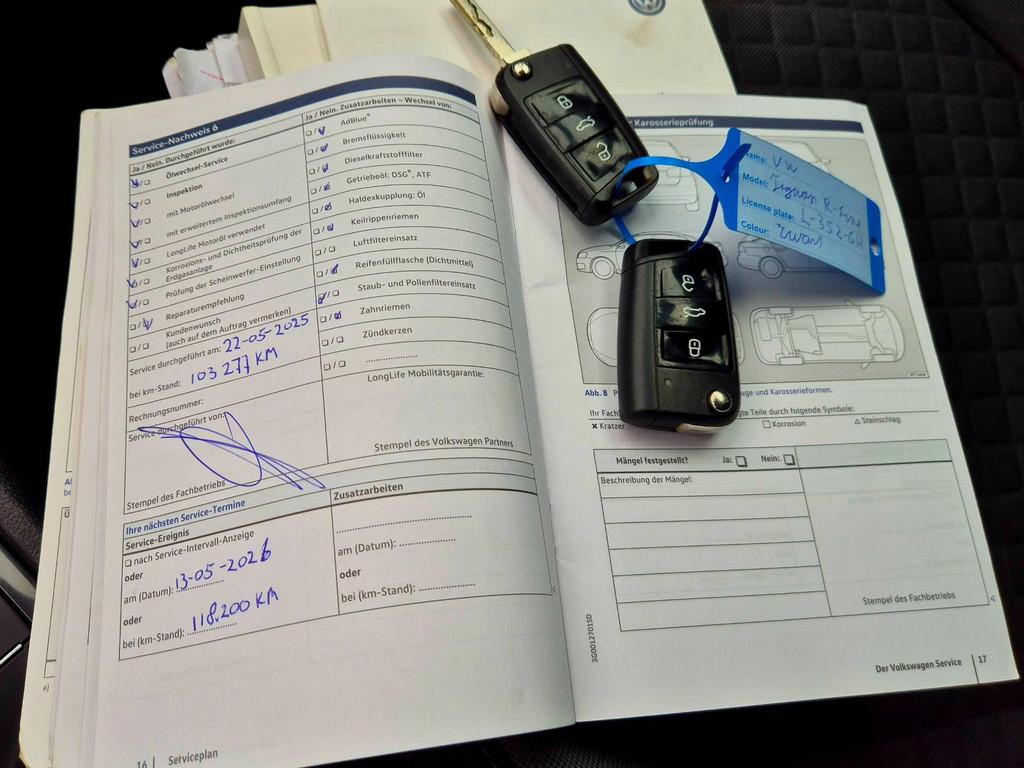 Service-Nachweis 6
Ja / Nein. Durchgeführt wurde:
Ölwechsel-Service
Inspektion
mit Motorölwechsel
mit erweitertem Inspektionsumfang
LongLife Motoröl verwendet
Korrosions- und Dichtheitsprüfung der
Erdgasanlage
Prüfung der Scheinwerfer-Einstellung
Reparaturempfehlung
Kundenwunsch
(auch auf dem Auftrag vermerken)
Service durchgeführt am: 22-05-2025
bei km-Stand: 103 277 KM
Rechnungsnummer:
Service durchgeführt von:
Stempel des Fachbetriebs
Ja / Nein. Zusatzarbeiten – Wechsel von:
AdBlue®
Bremsflüssigkeit
Dieselkraftstofffilter
Getriebeöl: DSG®, ATF
Haldexkupplung: Öl
Keilrippenriemen
Luftfiltereinsatz
Reifenfüllflasche (Dichtmittel)
Staub- und Pollenfiltereinsatz
Zahnriemen
Zündkerzen
LongLife Mobilitätsgarantie:
Stempel des Volkswagen Partners
Ihre nächsten Service-Termine
Service-Ereignis
nach Service-Intervall-Anzeige
oder
am (Datum): 13-05-2026
oder
bei (km-Stand): 118.200 KM
Zusatzarbeiten
am (Datum):
oder
bei (km-Stand):
16 | Serviceplan
Karosserieprüfung
Name: VW
Model: Tiguan R-Line
License plate: L-352-GH
Colour: zwart
Abb. 8
uge und Karosserieformen.
Ihr Fach
gte Teile durch folgende Symbole:
Kratzer
Korrosion
Steinschlag
Mängel festgestellt? Ja: Nein:
Beschreibung der Mängel:
Stempel des Fachbetriebs
3G0012701SD
Der Volkswagen Service | 17